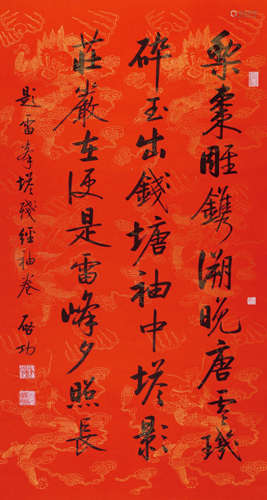 梨棗雕鐫溯晚唐零璣
碎玉出錢塘袖中塔影
莊嚴在便是雷峰夕照長
題雷峰塔殘經袖卷 啟功